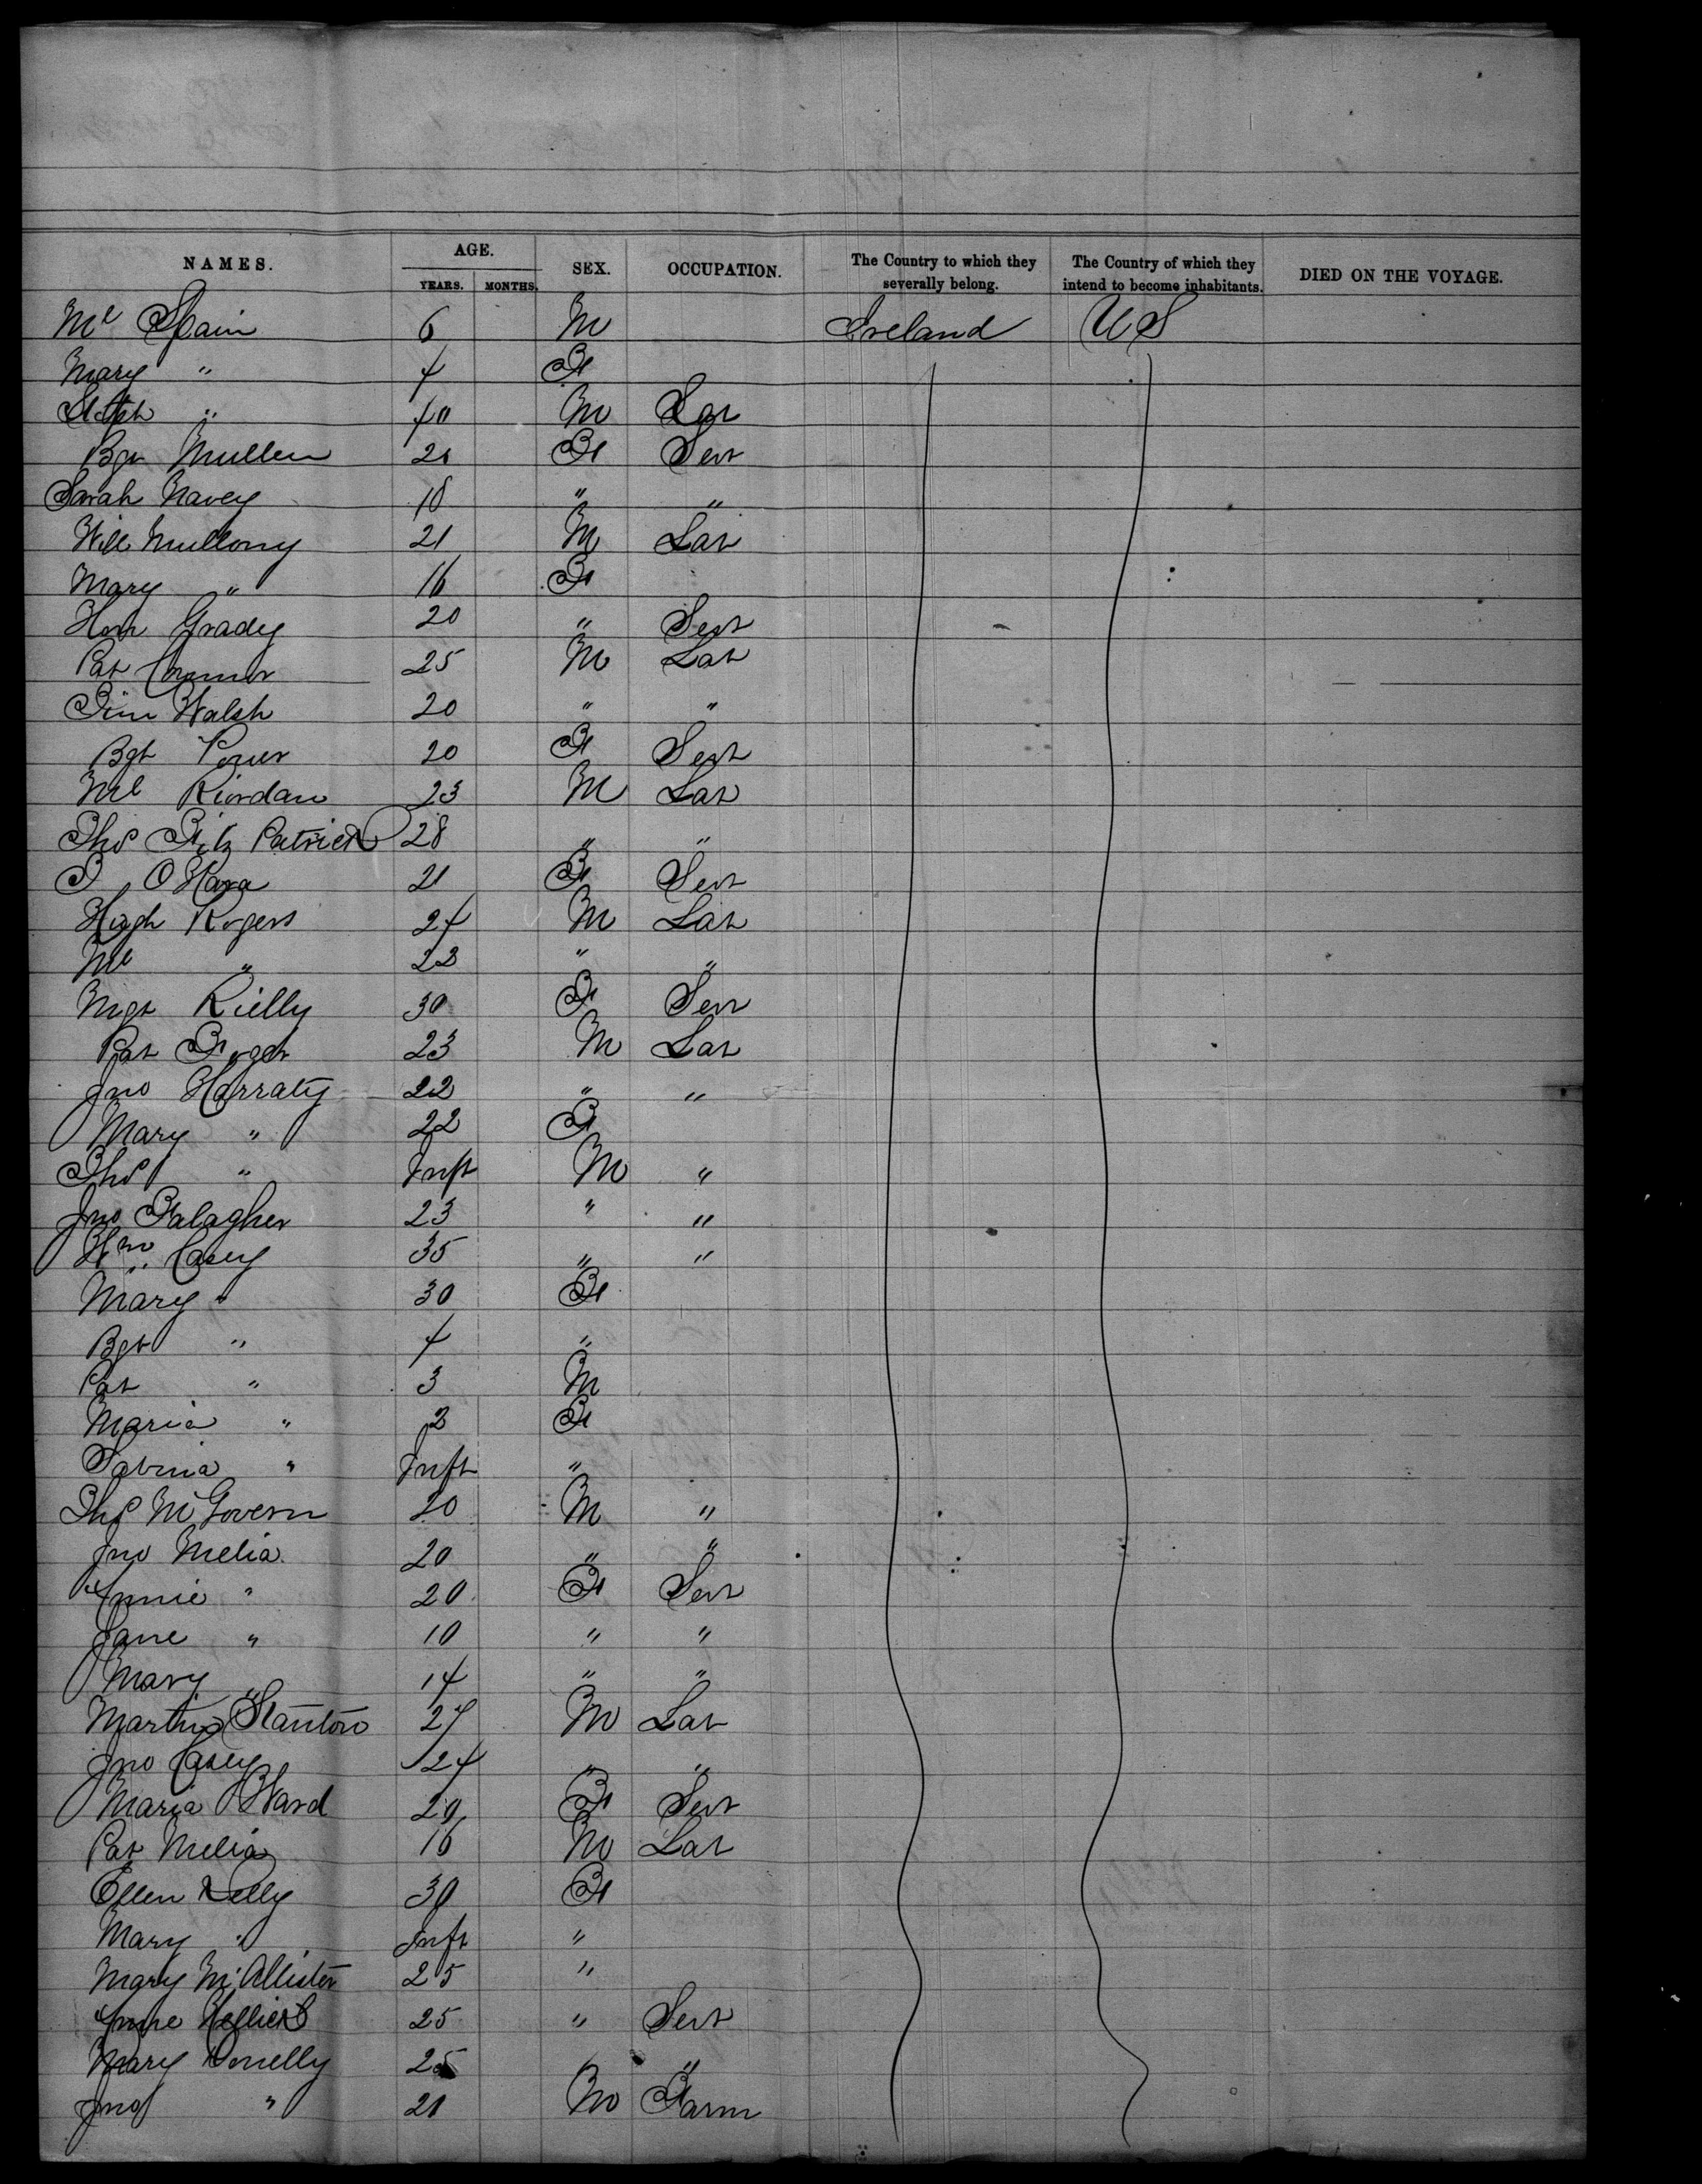 NAMES. AGE. SEX. OCCUPATION. The Country to which they severally belong. The Country of which they intend to become inhabitants. DIED ON THE VOYAGE.
YEARS. MONTHS.
Ml Spain 6 M Ireland US
Mary " 4 F
" 40 M Lab
Bgt Mullen 21 F Serv
Sarah Navey 18 " "
Will Mullony 21 M Lab
Mary " 16 F
Hon Grady 20 " Servt
Pat Connor 25 M Lab
Tim Walsh 20 " "
Bgt Power 20 F Servt
Ml Riordan 23 M Lab
Thos Fitz Patrick 28 " "
O Hara 21 F Servt
Hugh Rogers 24 M Lab
Ml " 22 " "
Mgt Rielly 30 F Serv
Pat 23 M Lab
Jno Harraty 22 " "
Mary " 22 F
Thos " Inft M "
Jno Galagher 23 " "
Wm Casey 35 " "
Mary " 30 F
Bgt " 4 "
Pat " 3 M
Maria " 2 F
Sabina " Inft "
Thos McGovern 20 M "
Jno Melia 20 " "
Annie " 20 F Servt
Jane " 10 " "
Mary " 14 " "
Martin Stanton 27 M Lab
Jno Casey 24 " "
Maria Ward 20 F Servt
Pat Melia 16 M Lab
Ellen Kelly 30 F
Mary " Inft "
Mary McAllister 25 "
Anne 25 " Servt
Mary Donelly 25 " "
Jno " 21 M Farm